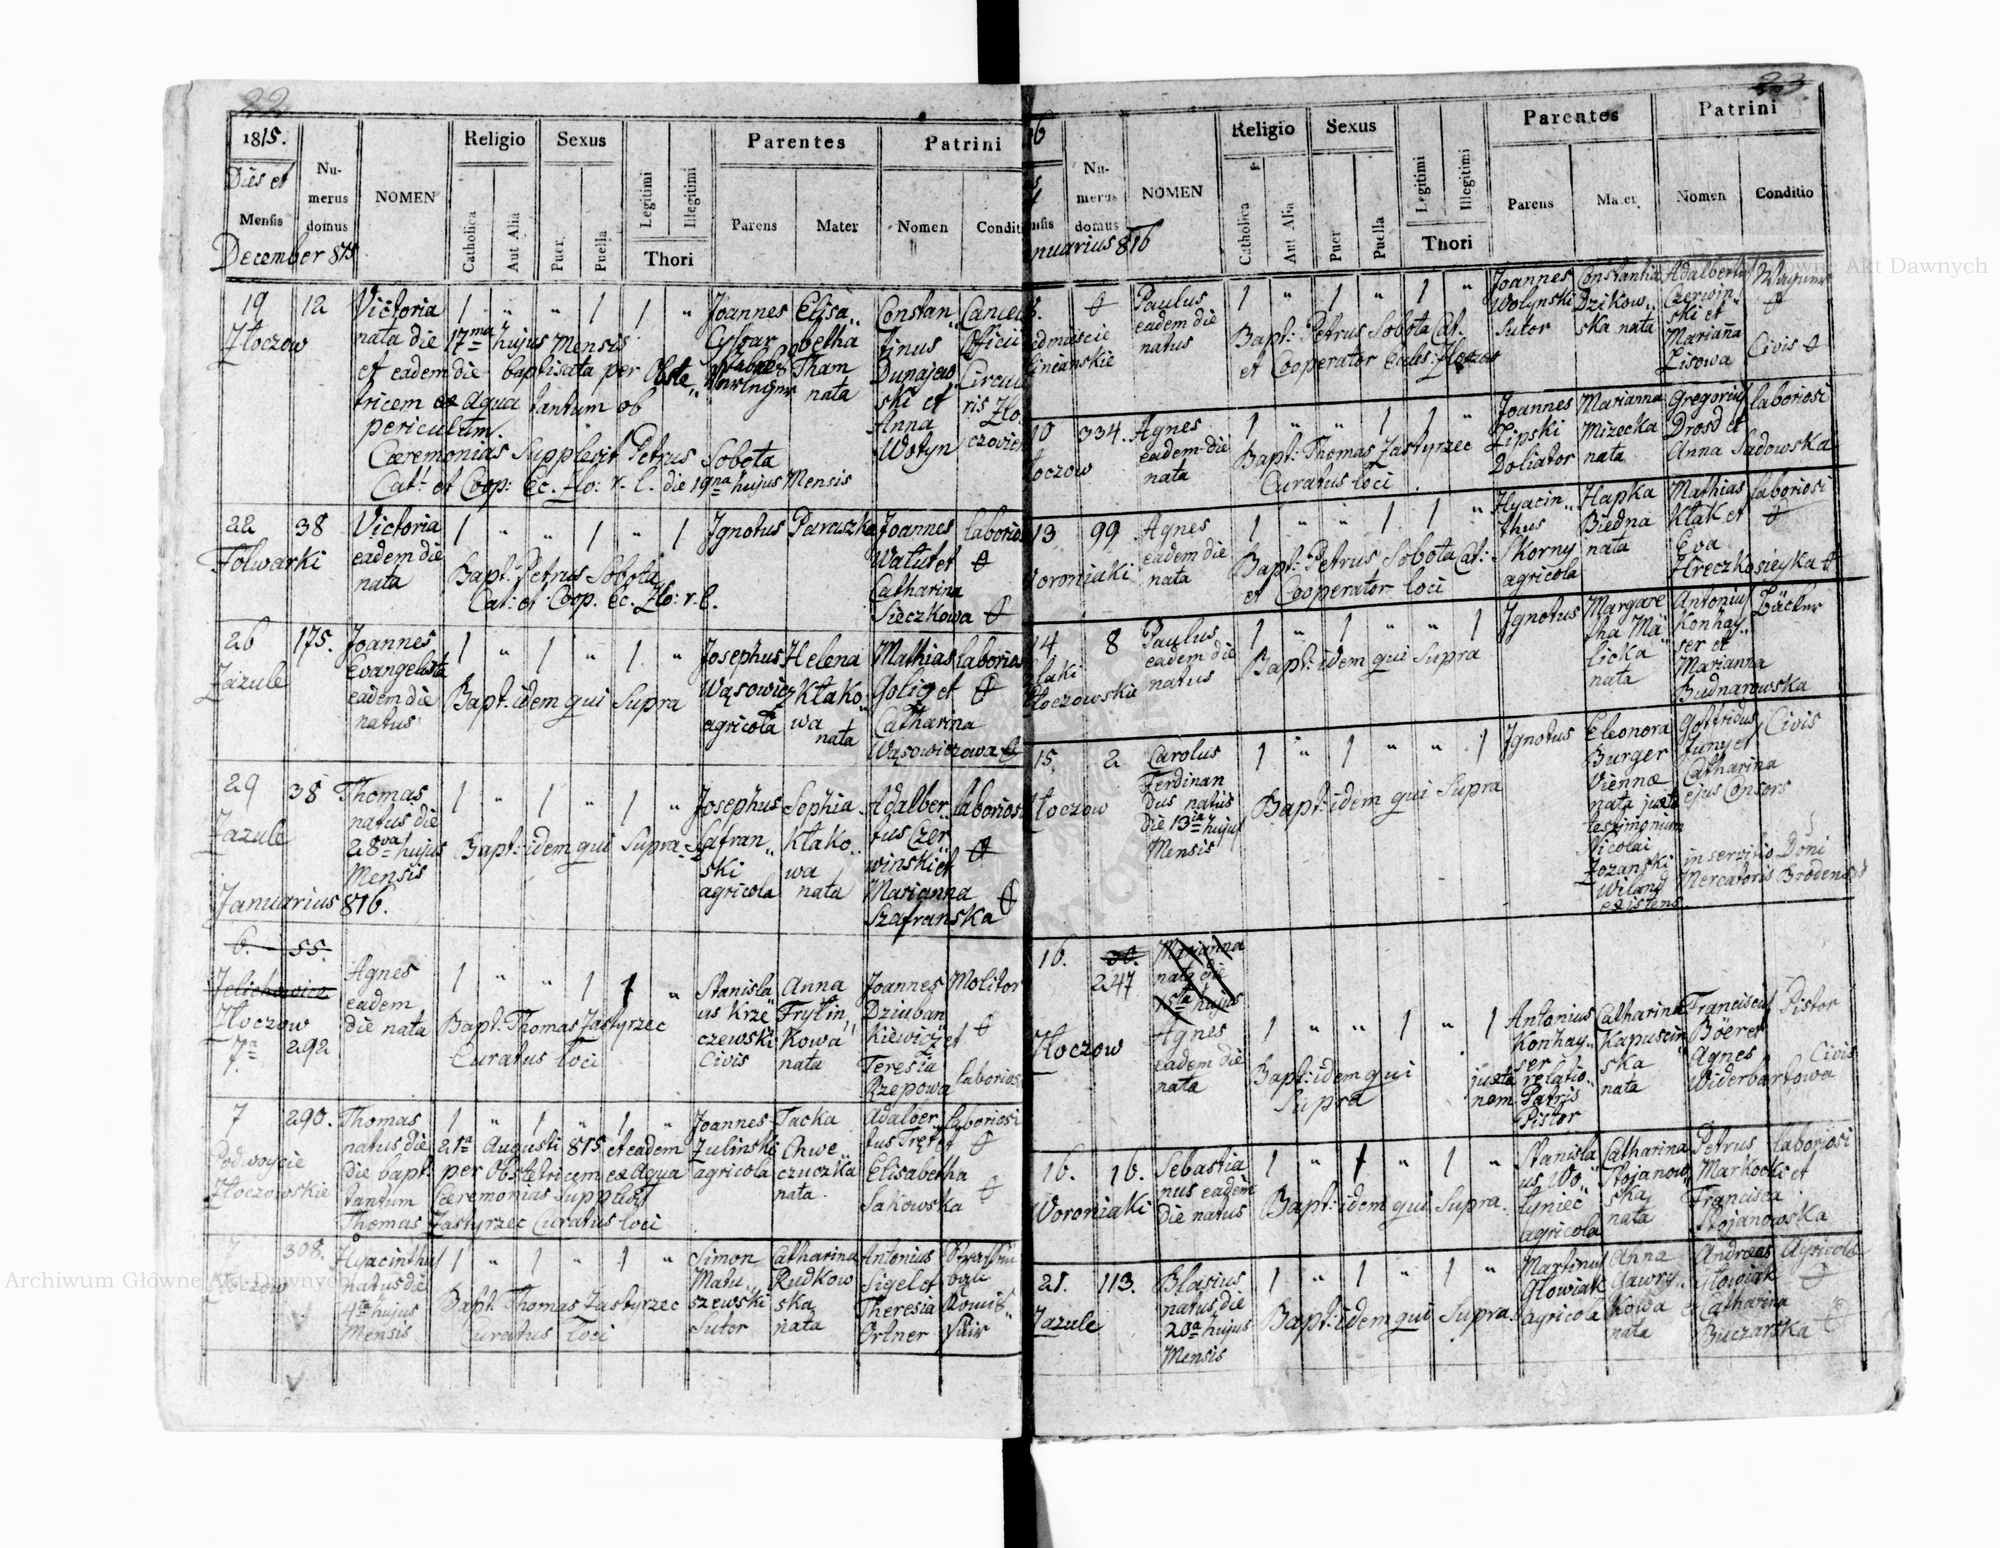 22
1815.
Dies et
Mensis
December 815
Nu-
merus
domus
NOMEN
Religio
Catholica
Aut Alia
Sexus
Puer.
Puella
Legitimi
Illegitimi
Thori
Parentes
Parens
Mater
Patrini
Nomen
Conditi
19
Złoczow
12
Victoria
nata die 17ma hujus Mensis
et eadem die baptisata per Obste„
tricem ex Aqua tantum ob
periculum.
Cæremonias Supplevit Petrus Sobota
Cat: et Coop: Ec. Zło: r. l. die 19na hujus Mensis
Joannes
Elisa„
betha
Tham
nata
Constan„
tinus
Dunajew„
ski et
Anna
Wotyn
Cancel
Officii
Circul
ris Zło„
czovien
22
Folwarki
38
Victoria
eadem die
nata
Bapt: Petrus Sobota
Cat: et Coop. Ec. Zło: r. l.
Ignotus
Paraszka
Joannes
Watut et
Catharina
Sieczkowa
laborio
26
Zazule
175.
Joannes
Evangelista
eadem die
natus
Bapt: idem qui Supra
Josephus
Wąsowicz
agricola
Helena
Kłako„
wa
nata
Mathias
Golicz et
Catharina
Wąsowiczowa
laborios
29
Zazule
38
Thomas
natus die
28va hujus
Mensis
Bapt: idem qui Supra
Josephus
Safran„
ski
agricola
Sophia
Kłako„
wa
nata
Adalber„
tus Czer„
winski et
Marianna
Szafranska
laborios
Januarius 816.
6. 55.
Złoczow
7a 292
Agnes
eadem
die nata
Bapt: Thomas Zastyrzec
Curatus loci
Stanisla„
us Krze„
czewski
Civis
Anna
Frytin„
kowa
nata
Joannes
Dziuban„
kiewicz et
Teresia
Rzepowa
Molitor
laborios
7
Podwoycie
Złoczowskie
290.
Thomas
natus die 21a Augusti 815 et eadem
die bapt. per Obstetricem ex Aqua
tantum Cæremonias Supplevit
Thomas Zastyrzec Curatus loci
Joannes
Zulinski
agricola
Tacka
Chwe„
czuczka
nata.
Adalber„
tus Tręt et
Elisabetha
Sakowska
laboriosi
7
Złoczow
308.
Hyacinthus
natus die
4ta hujus
Mensis
Bapt. Thomas Zastyrzec
Curatus loci
Simon
Matu„
szewski
Sutor
Catharina
Rudkow
ska
nata
Antonius
Sigel et
Theresia
Ortner
23
Nu-
merus
domus
nuarius 816
NOMEN
Religio
Catholica
Aut Alia
Sexus
Puer
Puella
Legitimi
Illegitimi
Thori
Parentes
Parens
Mater
Patrini
Nomen
Conditio
Paulus
eadem die
natus
Bapt: Petrus Sobota Cat.
et Cooperator
Joannes
Wolynski
Sutor
Constantia
Dzikow„
ska nata
Adalbertus
Czerwin„
ski et
Marianna
Lisowa
Civis
10
łoczow
334.
Agnes
eadem die
nata
Bapt: Thomas Zastyrzec
Curatus loci
Joannes
Lipski
Doliator
Marianna
Mizecka
nata
Gregorius
Drosd et
Anna Sadowska
laboriosi
13
Woroniaki
99
Agnes
eadem die
nata
Bapt: Petrus Sobota Cat:
et Cooperator loci
Hyacin„
thus
Skorny
agricola
Hapka
Biedna
nata
Mathias
Kłak et
Eva
Hreczkosieyka
laboriosi
14
łoczowskie
8
Paulus
eadem die
natus
Bapt: idem qui Supra
Ignotus
Margare„
tha Ma„
licka
nata
Antonius
Konhay„
ser et
Marianna
Budnarowska
Bäcker
15.
Złoczow
2
Carolus
Ferdinan
dus natus
die 13tia hujus
Mensis
Bapt: idem qui Supra
Ignotus
Eleonora
Burger
Viennæ
nata juxta
testimonium
Nicolai
Zozanski
Wiland
existens
in servitio Dni
Mercatoris Brodensis
Gottfridus
Juny et
Catharina
ejus Consors
Civis
16.
Złoczow
247
Marianna
nata die
1sta hujus
Agnes
eadem die
nata
Bapt: idem qui
Supra
juxta relatio„
nem Patris
Antonius
Konhay„
ser
Pistor
Catharina
Kapuscin„
ska
nata
Franciscus
Böer et
Agnes
Widerbartowa
Pistor
Civis
16.
Woroniaki
16.
Sebastia
nus eadem
die natus
Bapt: idem qui Supra.
Stanisla
us Wo„
tyniec
agricola
Catharina
Stojanow„
ska
nata
Petrus
Markocki et
Francisca
Stojanowska
laboriosi
21.
Zazule
113.
Blasius
natus die
20a hujus
Mensis
Bapt: idem qui Supra.
Martinus
Głowiak
agricola
Anna
Gawry„
kowa
nata
Andreas
Głowiak
et Catharina
Buczarska
Agricolæ
Archiwum Główne Akt Dawnych